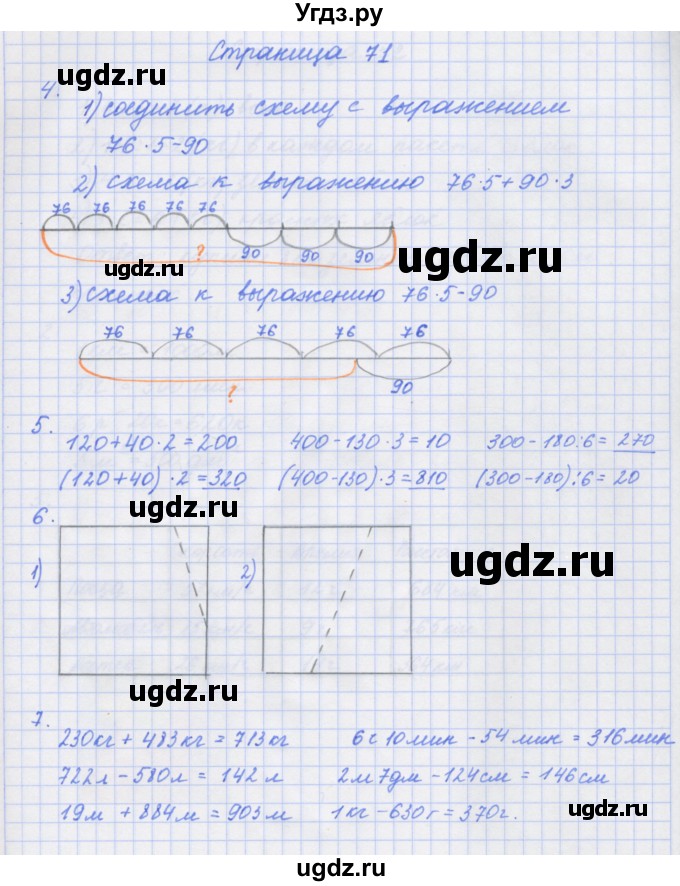 Угдз.ру
Страница 71
4.
1) соединить схему с выражением
76·5-90
2) схема к выражению 76·5+90·3
76 76 76 76 76
?
90 90 90
3) схема к выражению 76·5-90
76 76 76 76 76
?
90
5.
120+40·2=200 400-130·3=10 300-180:6=270
(120+40)·2=320 (400-130)·3=810 (300-180):6=20
6.
1) 2)
7.
230кг + 483кг = 713кг 6с 10мин - 54мин = 316мин
722л - 580л = 142л 2м 7дм - 124см = 146см
19м + 884м = 903м 1кг - 630г = 370г.
ugdz.ru
ugdz.ru
ugdz.ru
ugdz.ru
ugdz.ru
ugdz.ru
ugdz.ru
ugdz.ru
ugdz.ru
ugdz.ru
ugdz.ru
ugdz.ru